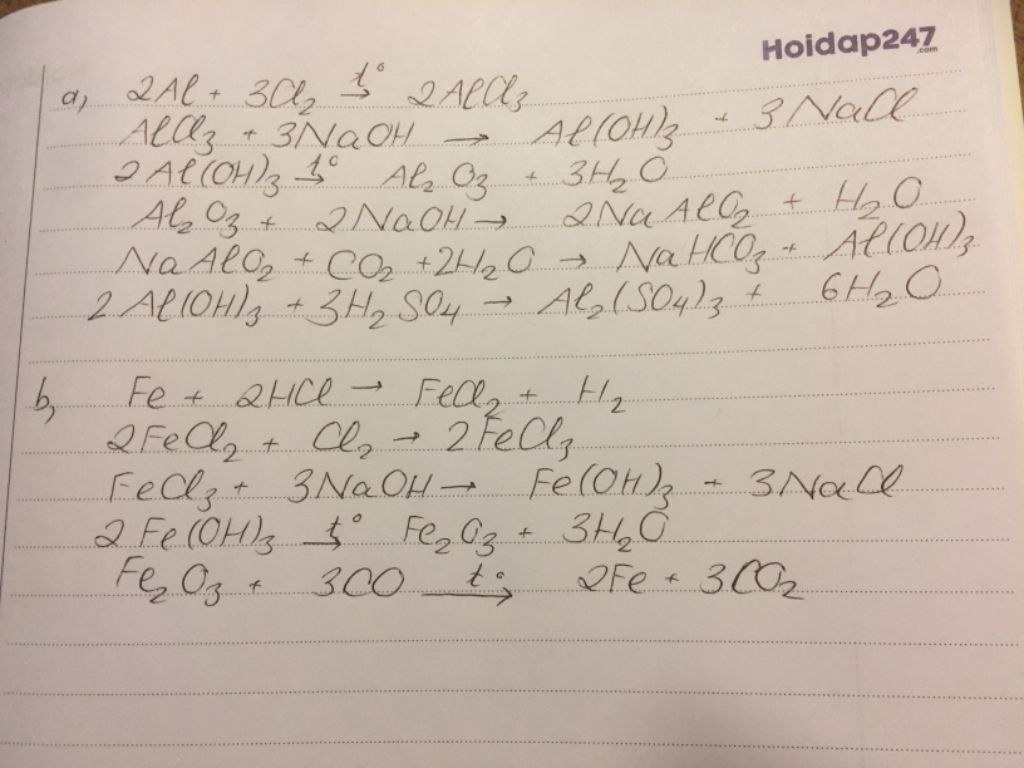 Hoidap247
.com
a, 2Al + 3Cl₂ t° → 2AlCl₃
AlCl₃ + 3NaOH → Al(OH)₃ + 3NaCl
2Al(OH)₃ t° → Al₂O₃ + 3H₂O
Al₂O₃ + 2NaOH → 2NaAlO₂ + H₂O
NaAlO₂ + CO₂ + 2H₂O → NaHCO₃ + Al(OH)₃
2Al(OH)₃ + 3H₂SO₄ → Al₂(SO₄)₃ + 6H₂O
b, Fe + 2HCl → FeCl₂ + H₂
2FeCl₂ + Cl₂ → 2FeCl₃
FeCl₃ + 3NaOH → Fe(OH)₃ + 3NaCl
2Fe(OH)₃ t° → Fe₂O₃ + 3H₂O
Fe₂O₃ + 3CO t° → 2Fe + 3CO₂